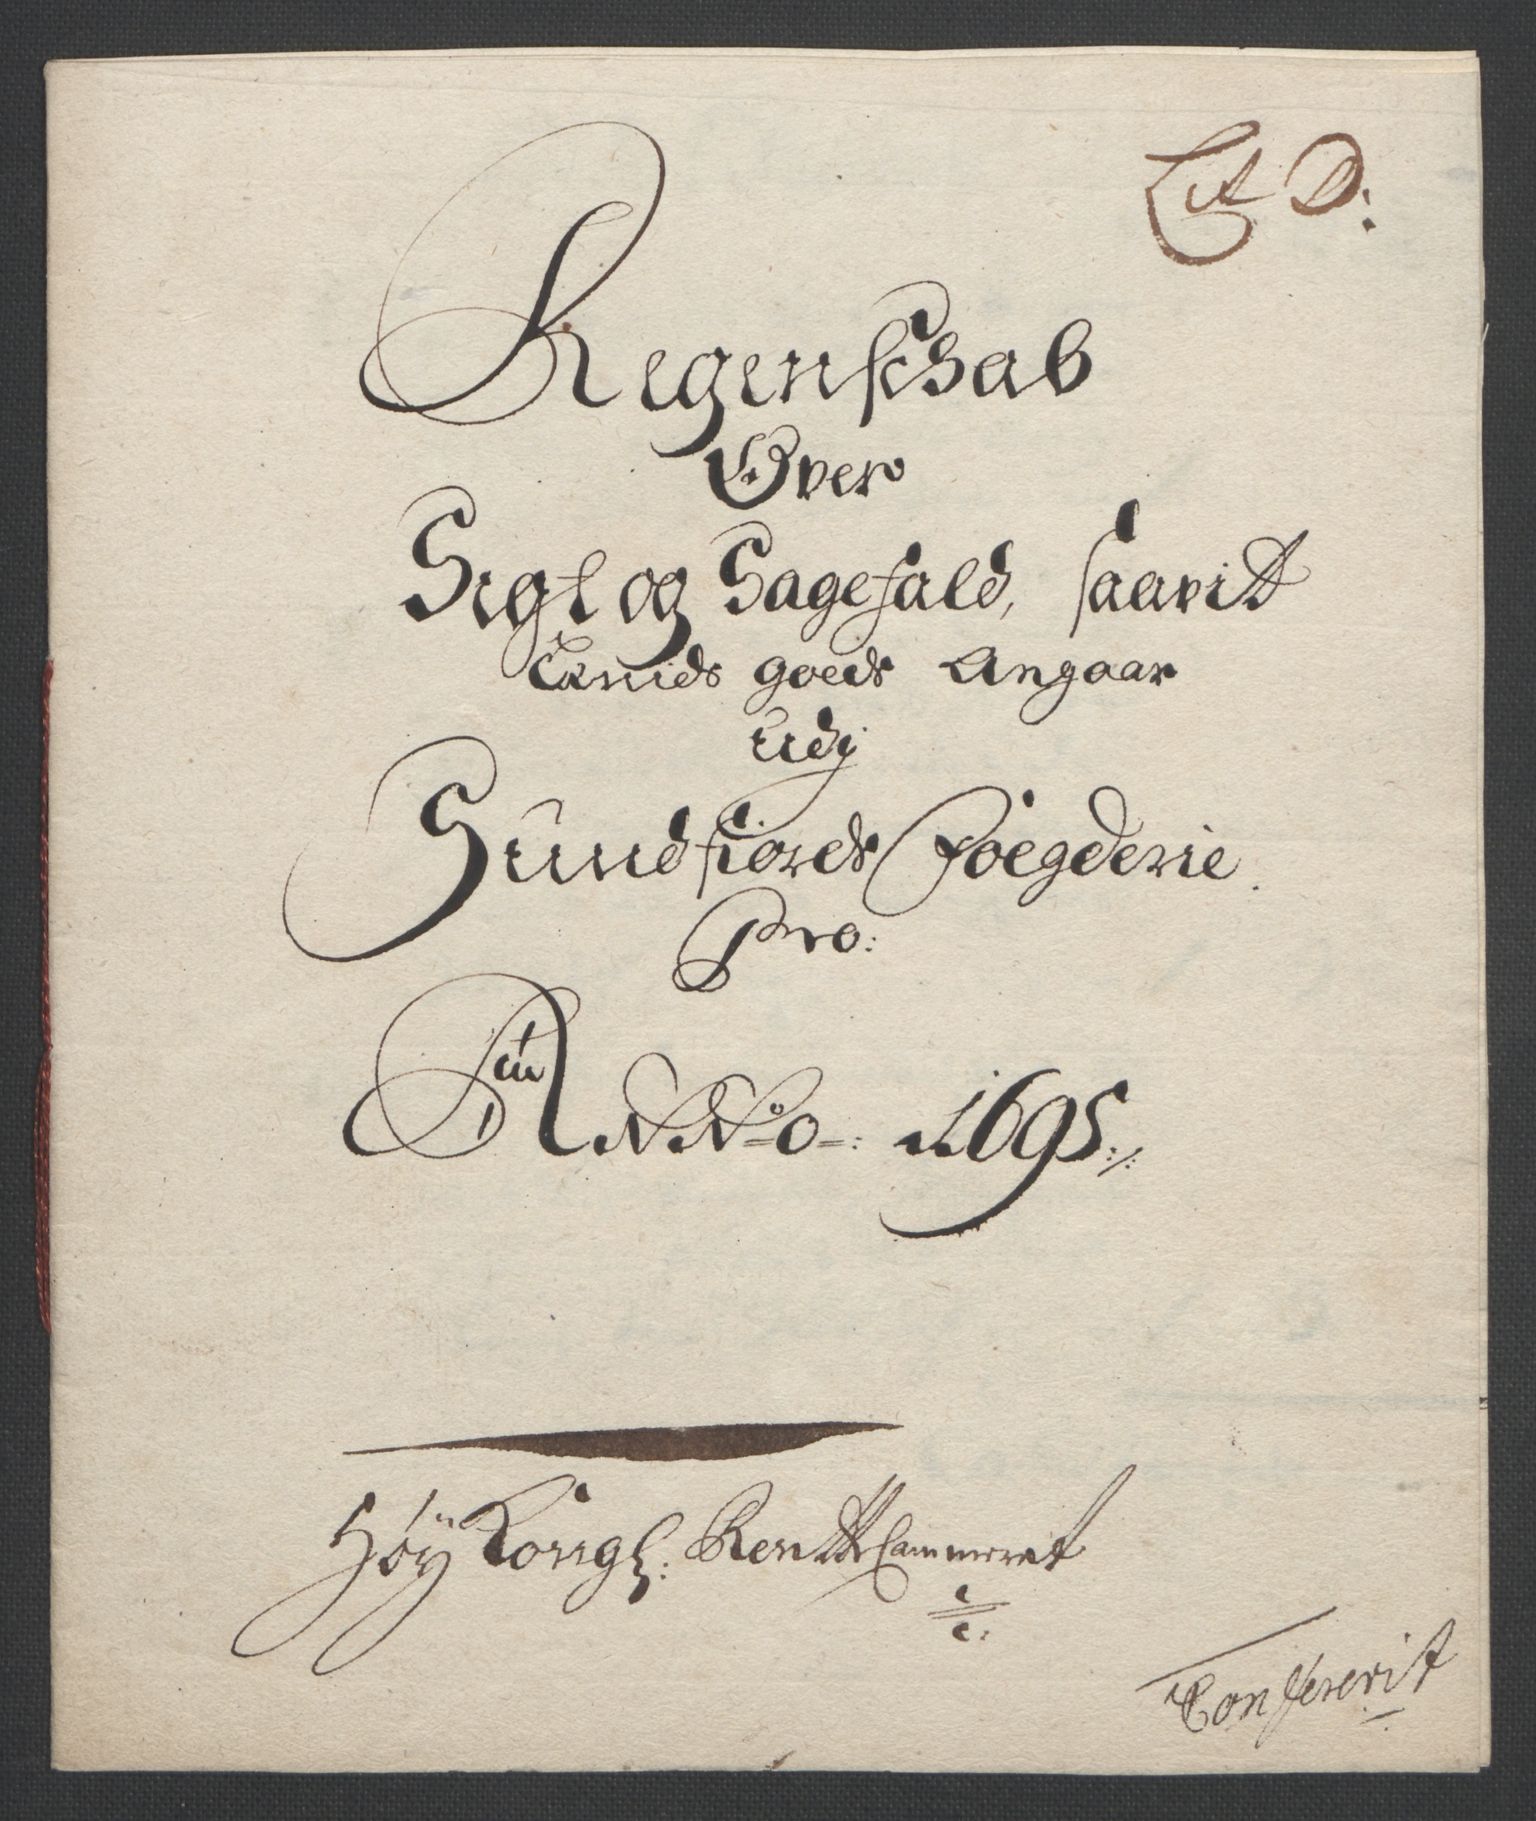 Lit D:
Regenschab
Over
Sigt og Sagefald, saavit
goeds Angaar
udj
Sundfiords Foegderie.
Pro:
Anno: 1695:/:
Höy Kongl: Rentte Cammeret
Confererit